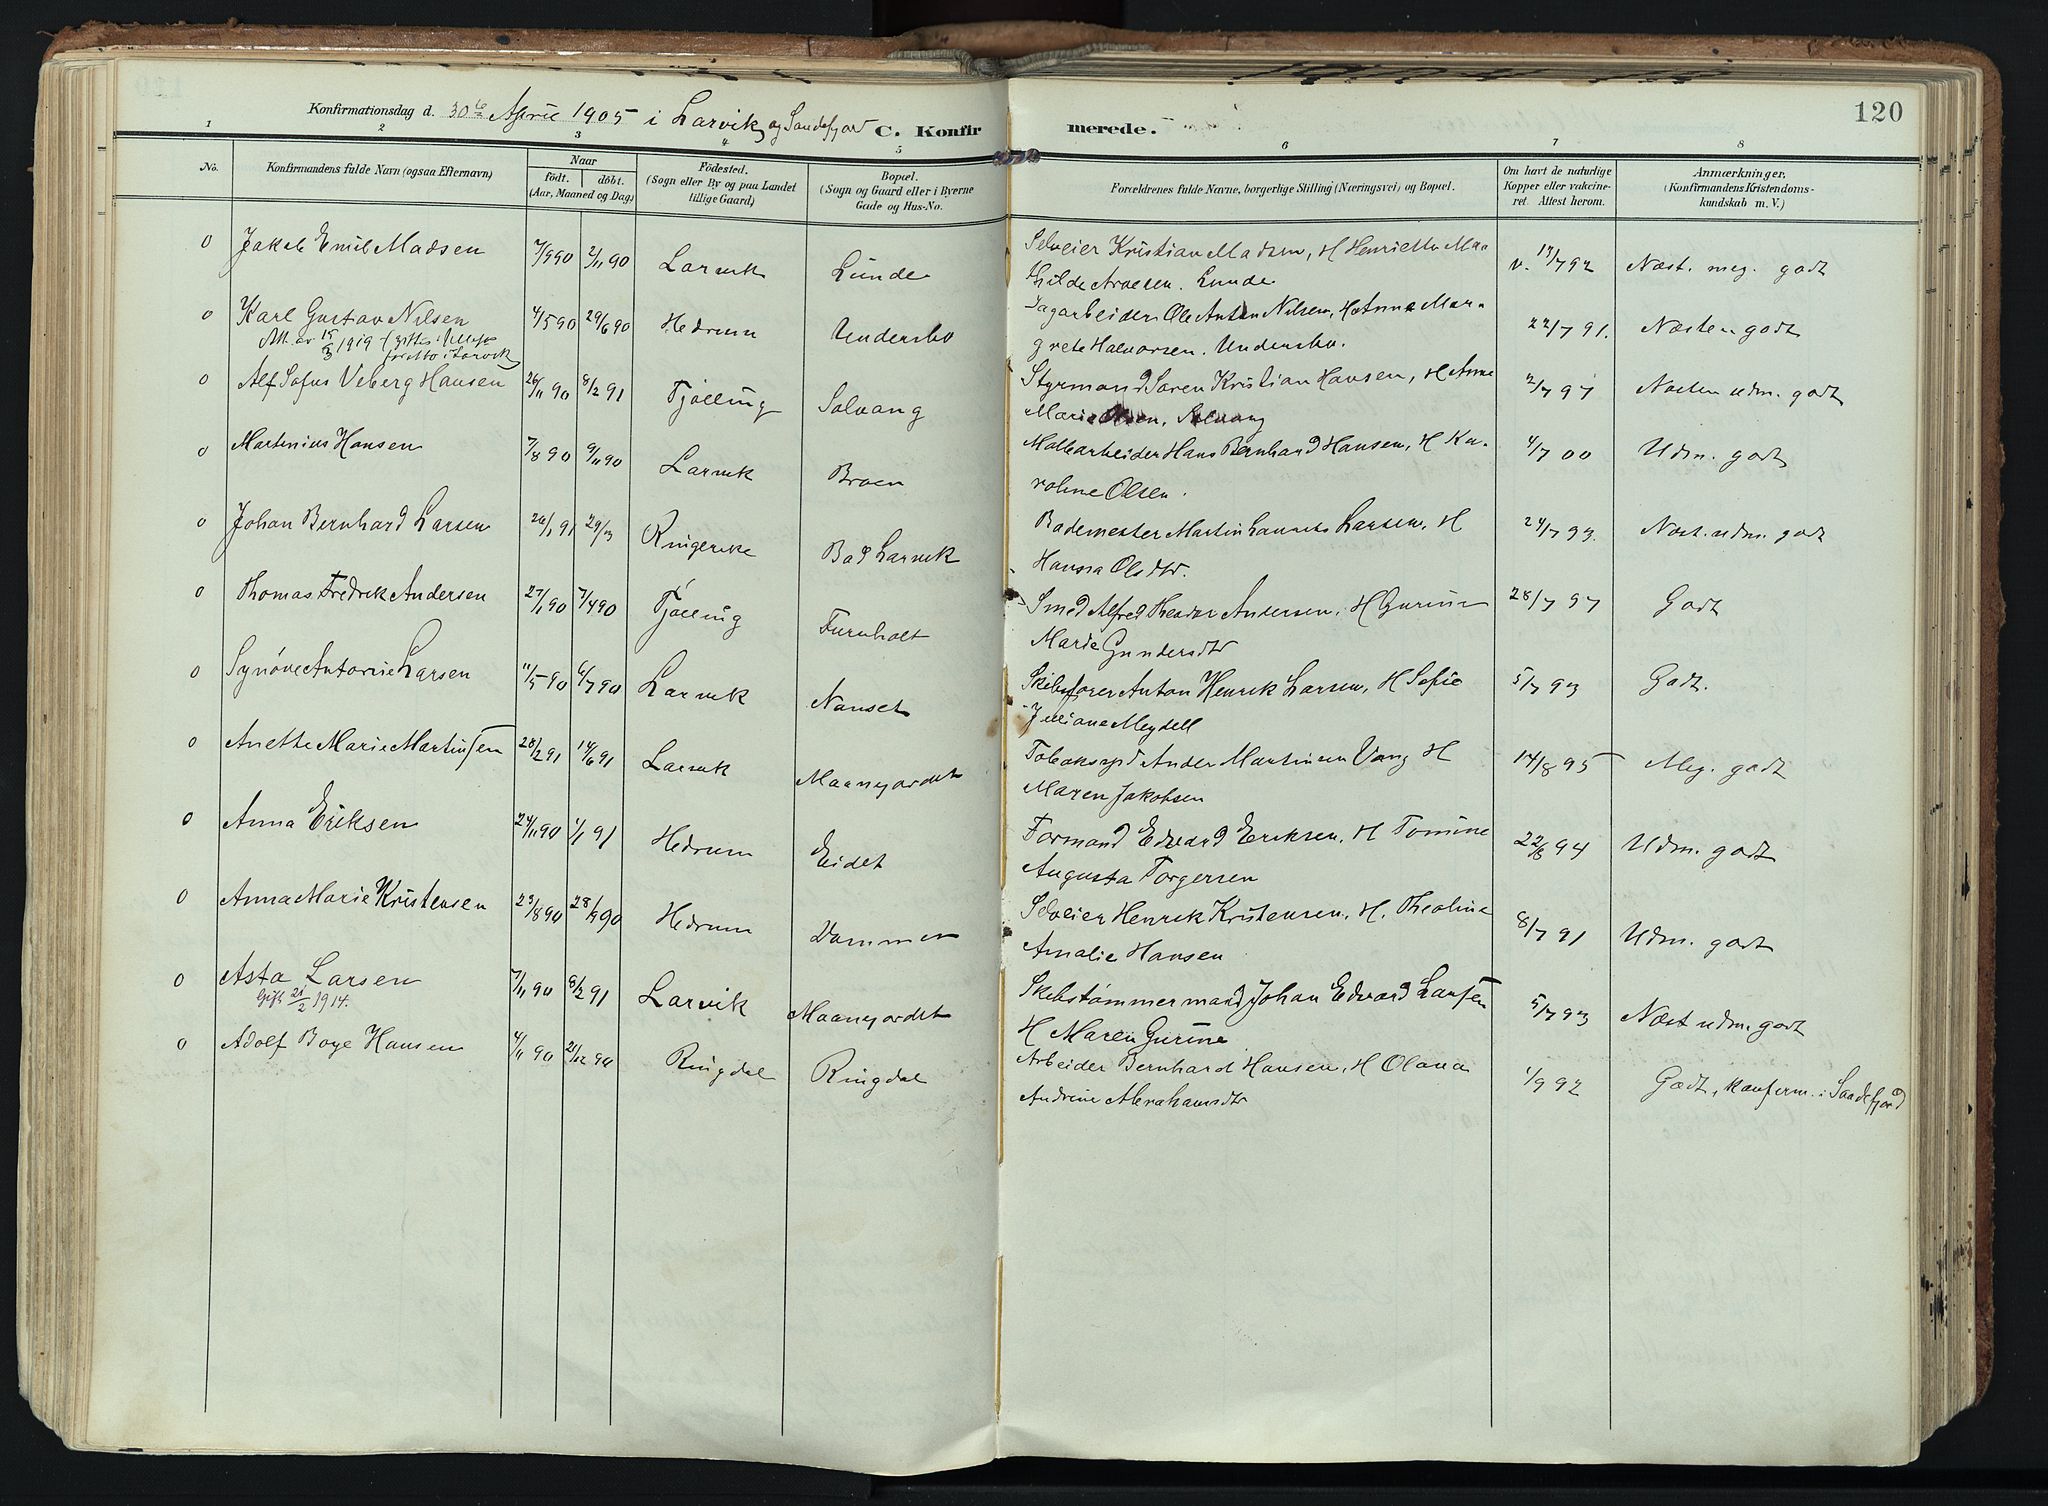 120
Konfirmationsdag d. 30te April 1905 i Larvik og Sandefjord C. Konfirmerede.
1 2 3 4 5 6 7 8
No. Konfirmandens fulde Navn (ogsaa Efternavn) Naar födt. döbt. (Aar, Maaned og Dag) Födested. (Sogn eller By og paa Landet tillige Gaard) Bopæl. (Sogn og Gaard eller i Byerne Gade og Hus-No. Forældrenes fulde Navne, borgerlige Stilling (Næringsvei) og Bopæl. Om havt de naturlige Kopper eller vakcineret. Attest herom. Anmærkninger. (Konfirmandens Kristendomskundskab m. V.)
0 Jakob Emil Madsen 7/9 90 2/11 90 Larvik Lunde Selveier Kristian Madsen, H Henriette Ma- v. 17/7 92 Næst. meg. godt
thilde Arvesen. Lunde
0 Karl Gustav Nilsen 4/5 90 29/6 90 Hedrum Undersbo Dagarbeider Ole Anton Nilsen, H Anne Mar- 22/7 91. Næsten godt
Att. av 15/3 1919 (giftes i
i Larvik)
grete Halvorsen. Undersbo.
0 Alf Sofus Veberg Hansen 26/11 90 8/2 91 Tjølling Solvang Styrmand Søren Kristian Hansen, H Anne 2/7 97 Næsten udm. godt
Marie Olsen, Solvang
0 Martinius Hansen 7/8 90 9/11 90 Larvik Broen Hans Bernhard Hansen, H Ka- 4/7 00 Udm. godt
roline Olsen.
0 Johan Bernhard Larsen 26/1 91 29/3 Ringerike Bad Larvik Bademester Martin Laurits Larsen, H 24/7 93. Næst. udm. godt
Hanna Olsdtr.
0 Thomas Fredrik Andersen 27/1 90 7/4 90 Tjølling Furuholt Smed Alfred Theodor Andersen, H Gurine 28/7 97 Godt
Marie Gundersdtr
0 Synøve Antonie Larsen 11/5 90 6/7 90 Larvik Nanset Skibsfører Anton Henrik Larsen, H Sofie 5/7 93 Godt.
Juliane Meydell
0 Anette Marie Martinsen 28/2 91 14/6 91 Larvik Maanejordet Anders Martinsen Vang H 14/8 95 Meg. godt
Maren Jakobsen
0 Anna Eriksen 24/11 90 1/1 91 Hedrum Eidet Formand Edvard Eriksen, H Tomine 22/8 94 Udm. godt
Augusta Torgersen
0 Anna Marie Kristensen 23/8 90 28/9 90 Hedrum Dammen Selveier Henrik Kristensen, H. Theoline 8/7 91 Udm. godt
Amalie Hansen
0 Asta Larsen 7/11 90 8/2 91 Larvik Maanejordet Skibstømmermand Johan Edvard Larsen 5/7 93 Næst udm. godt
Gift 21/2 1914.
H Maren Gurine
0 Adolf Boye Hansen 4/11 90 21/12 90 Ringdal Ringdal Arbeider Bernhard Hansen, H Olava 1/9 92 Godt, konferm. i Sandefjord
Andrine Abrahamsdtr